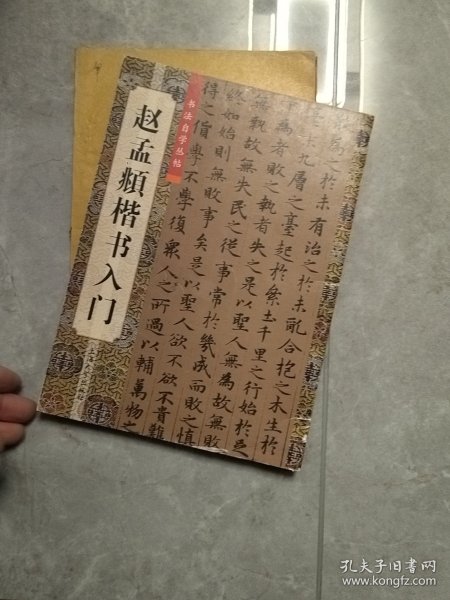 赵孟頫楷书入门
书法自学丛帖
為之於未有治之於未亂合抱之木生於
毫末九層之臺起於絫土千里之行始於足
為者敗之執者失之是以聖人無為故無敗
無執故無失民之從事常於幾成而敗之慎
終如始則無敗事矣是以聖人欲不欲不貴難
得之貨學不學復衆人之所過以輔萬物
孔夫子旧书网
www.kongfz.com